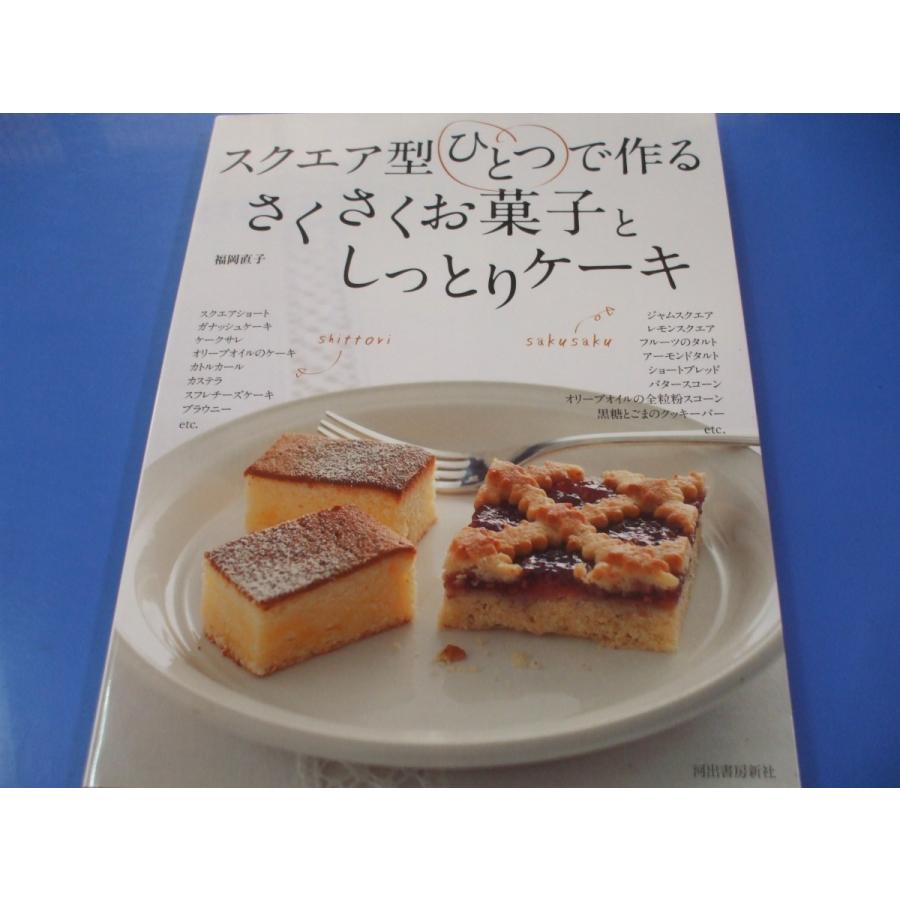 スクエア型ひとつで作る
さくさくお菓子と
しっとりケーキ
福岡直子
スクエアショート
ガナッシュケーキ
ケークサレ
オリーブオイルのケーキ
カトルカール
カステラ
スフレチーズケーキ
ブラウニー
etc.
shittori
sakusaku
ジャムスクエア
レモンスクエア
フルーツのタルト
アーモンドタルト
ショートブレッド
バタースコーン
オリーブオイルの全粒粉スコーン
黒糖とごまのクッキーバー
etc.
河出書房新社